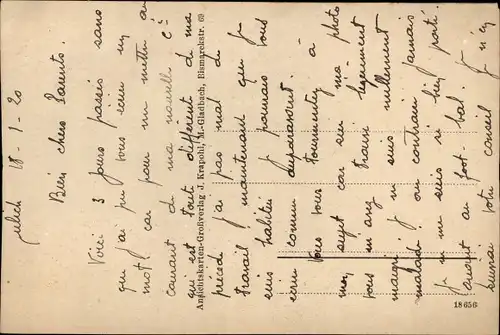 Julich 18-1-20
Bien chers Parents.
Voici 3 jours passés sans
que j'ai pu vous écrire un
mot car pour me mettre au
courant de ma nouvelle Cie
qui est tout différent de ma
précéd j'ai pas mal de
travail maintenant que je
suis habitué je pourrais vous
écrire comme auparavant.
Vous vous tourmentez à
mon sujet car sur ma photo
vous m'avez trouvé légèrement
maigri je ne suis nullement
malade au contraire jamais
je ne me suis si bien porté.
quant au foot bal. j'ai
suivi votre conseil
Ansichtskarten-Großverlag J. Krapohl, M.-Gladbach, Bismarckstr. 69
18656